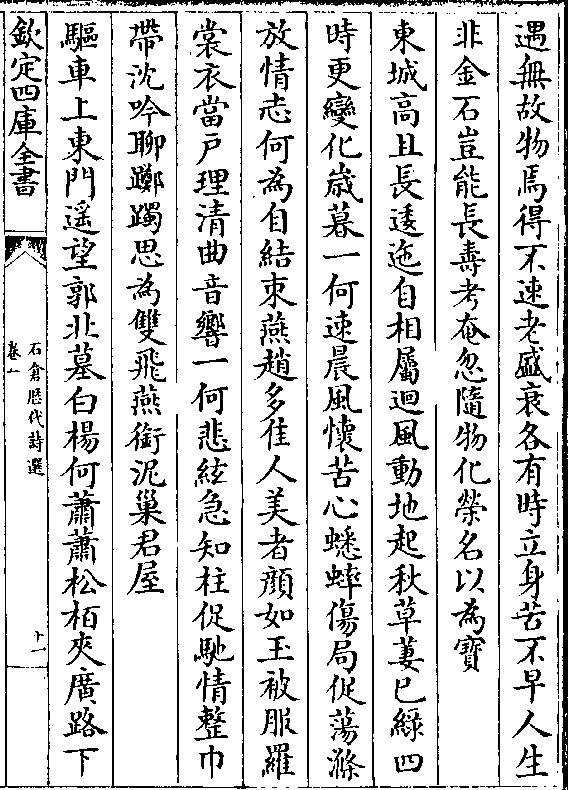 遇無故物焉得不速老盛衰各有時立身苦不早人生
非金石豈能長壽考奄忽隨物化榮名以為寳
東城髙且長逶迤自相屬迴風動地起秋草萋已緑四
時更變化歳暮一何速晨風懷苦心蟋蟀傷局促蕩滌
放情志何為自結束燕趙多佳人美者顔如玉被服羅
裳衣當户理清曲音響一何悲絃急知柱促馳情整巾
帶沈吟聊躑躅思為雙飛燕銜泥巢君屋
驅車上東門遥望郭北墓白楊何蕭蕭松栢夾廣路下
欽定四庫全書
石倉歴代詩選
卷一
十一